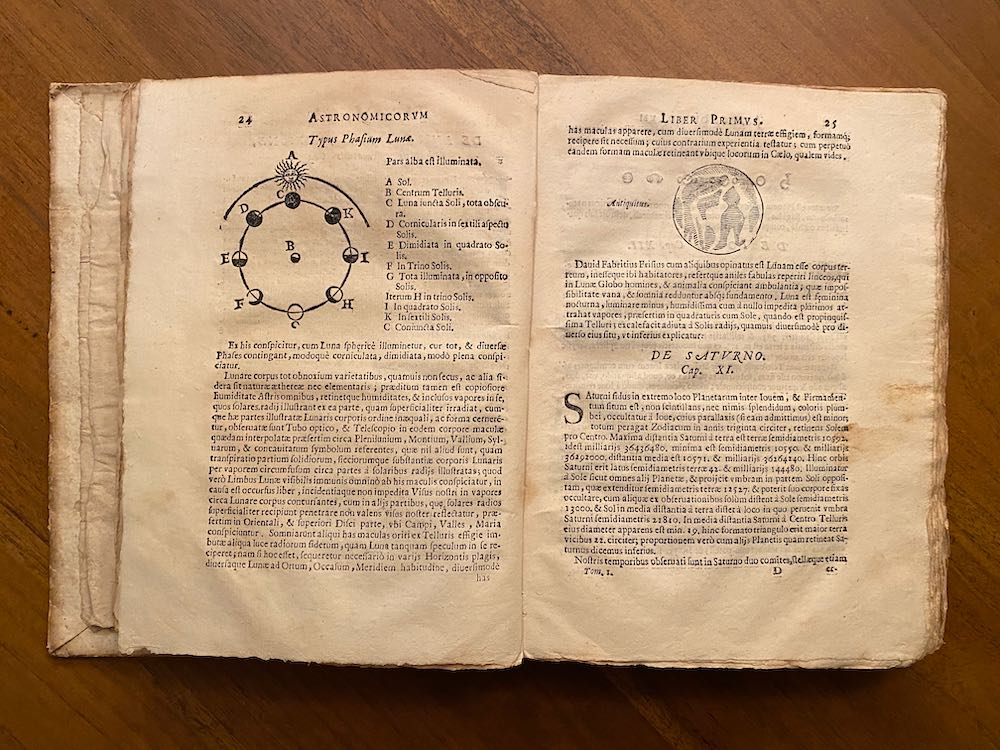 24
ASTRONOMICORVM
Typus Phasium Lunæ.
A
C
D
K
B
E
I
F
H
G
Pars alba est illuminata.
A Sol.
B Centrum Telluris.
C Luna iuncta Soli, tota obscu-
ra.
D Cornicularis in sextili aspectu
Solis.
E Dimidiata in quadrato So-
lis.
F In Trino Solis.
G Tota illuminata, in opposito
Solis.
Iterum H in trino Solis.
I In quadrato Solis.
K In sextili Solis.
C Coniuncta Soli.
Ex his conspicitur, cum Luna sphæricè illuminetur, cur tot, & diuersæ
Phases contingant, modoquè corniculata, dimidiata, modò plena conspi-
ciatur.
Lunare corpus tot obnoxium varietatibus, quamuis non secus, ac alia si-
dera sit naturæ æthereæ nec elementaris; præditum tamen est copiosiore
humiditate Astris omnibus, retinetque humiditates, & inclusos vapores in se,
quos solares radij illustrant ex ea parte, quam superficialiter irradiat, cum-
que hæ partes illustratæ Lunaris corporis ordine inæquali, ac forma cernere-
tur, obseruatæ sunt Tubo optico, & Telescopio in eodem corpore maculæ
quædam interpolatæ præsertim circa Plenilunium, Montium, Vallium, Syl-
uarum, & concauitatum symbolum referentes, quæ nil aliud sunt, quam
transpiratio partium solidiorum, secciorumque substantiæ corporis Lunaris
per vaporem circumfusum circa partes à solaribus radijs illustratas; quod
verò Limbus Lunæ visibilis immunis omninò ab his maculis conspiciatur, in
causa est occursus liber, incidentiaque non impedita Visus nostri in vapores
circa Lunare corpus conturiantes, cum in alijs partibus, quæ solares radios
superficialiter recipiunt penetrare non valens visus noster reflectatur, præ-
sertim in Orientali, & superiori Disci parte, vbi Campi, Valles, Maria
conspiciuntur. Somniarunt aliqui has maculas oriri ex Telluris effigie im-
buræ aliqua luce radiorum siderum, quam Luna tanquam speculum in se re-
ciperet; nam si hoc esset, sequeretur necessariò in varijs Horizontis plagis,
diuersiaque Lunæ ad Ortum, Occasum, Meridiem habitudine, diuersimodè
has
LIBER PRIMVS.
25
has maculas apparere, cum diuersimodè Lunam terræ effigiem, formamq;
recipere sit necessium; cuius contrarium experientia testatur; cum perpetuò
eandem formam maculæ retineant vbique locorum in Cælo, qualem vides.
Antiquitus.
Dauid Fabritius Frisius cum aliquibus opinatus est Lunam esse corpus ter-
reum, inesseque ibi habitatores, refertque aniles fabulas reperiri linceos, qui
in Lunæ Globo homines, & animalia conspiciant ambulantia; quæ impos-
sibilitate vana, & somnia redduntur absq; fundamento. Luna est feminina
nocturna, luminare minus, humidissima cum à nullo impedita plurimos at-
trahat vapores, præsertim in quadraturis cum Sole, quando est propinquis-
sima Telluri; excalefacit adiuta à Solis radijs, quamuis diuersimodè pro di-
uerso eius situ, vt inferius explicatur.
DE SATVRNO.
Cap. XI.
SAturni sidus in extremo loco Planetarum inter Iouem, & Firmamen-
tum situm est, non scintillans, nec nimis splendidum, coloris plum-
bei, occultatur à Ioue, cuius parallaxis (si eam admittimus) est minor;
totum peragat Zodiacum in annis triginta circiter, retinens Solem
pro Centro. Maxima distantia Saturni à terra est terræ semidiametris 10592.
idest milliaris 36436480. minima est semidiametris 10550. & milliarijs
36292000. distantia media est 10571. & milliarijs 36264240. Hinc orbis
Saturni erit latus semidiametris terræ 42. & milliarijs 144480. Illuminatur
à Sole sicut omnes alij Planetæ, & projicit vmbram in partem Soli opposi-
tam, quæ extenditur semidiametris terræ 12527. & poterit suo corpore fixas
occultare, cum aliquæ ex obseruationibus solùm distent à Sole semidiametris
13000. & Sol in media distantia à terra distet à loco in quo peruenit vmbra
Saturni semidiametris 21810. In media distantia Saturni à Centro Telluris
eius diameter apparens est min. 29. hinc formato triangulo erit maior terra
vicibus 22. circiter; proportionem verò cum alijs Planetis quam retineat Sa-
turnus dicemus inferius.
Nostris temporibus obseruati sunt in Saturno duo comites, stellæque etiam
Tom. 1.
D